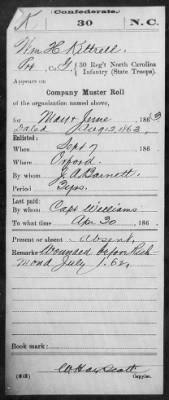 Confederate.
K 30 N.C.
Wm H. Kittrell
Pvt, Co. G, 30 Reg't North Carolina
Infantry (State Troops)
Appears on
Company Muster Roll
of the organization named above,
for May & June, 1863
Dated Aug 12, 1863
Enlisted:
When Sept 7, 186
Where Oxford
By whom J. A. Barnett
Period 3 yrs.
Last paid:
By whom Capt Williams
To what time Apr 30, 186
Present or absent Absent
Remarks: Wounded before Rich
mond July 1. 62.
Book mark:
(642) Copyist.